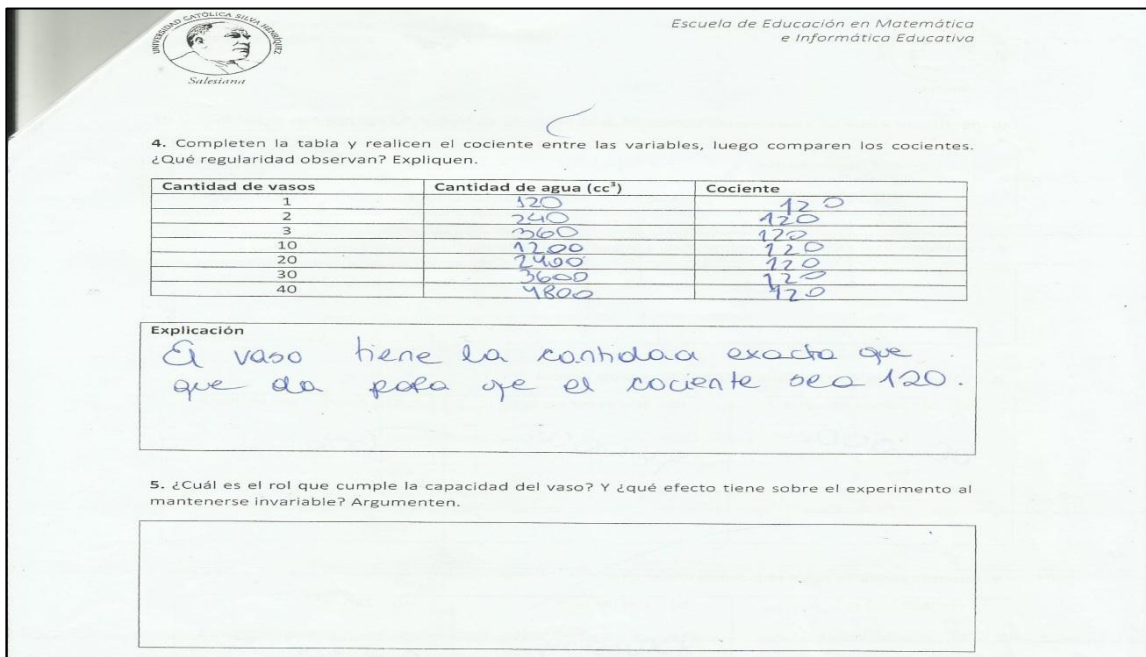 UNIVERSIDAD CATÓLICA SILVA HENRÍQUEZ
Salesiana
Escuela de Educación en Matemática
e Informática Educativa
4. Completen la tabla y realicen el cociente entre las variables, luego comparen los cocientes.
¿Qué regularidad observan? Expliquen.
Cantidad de vasos Cantidad de agua (cc³) Cociente
1 120 120
2 240 120
3 360 120
10 1200 120
20 2400 120
30 3600 120
40 4800 120
Explicación
El vaso tiene la cantidad exacta que
que da para que el cociente sea 120.
5. ¿Cuál es el rol que cumple la capacidad del vaso? Y ¿qué efecto tiene sobre el experimento al
mantenerse invariable? Argumenten.